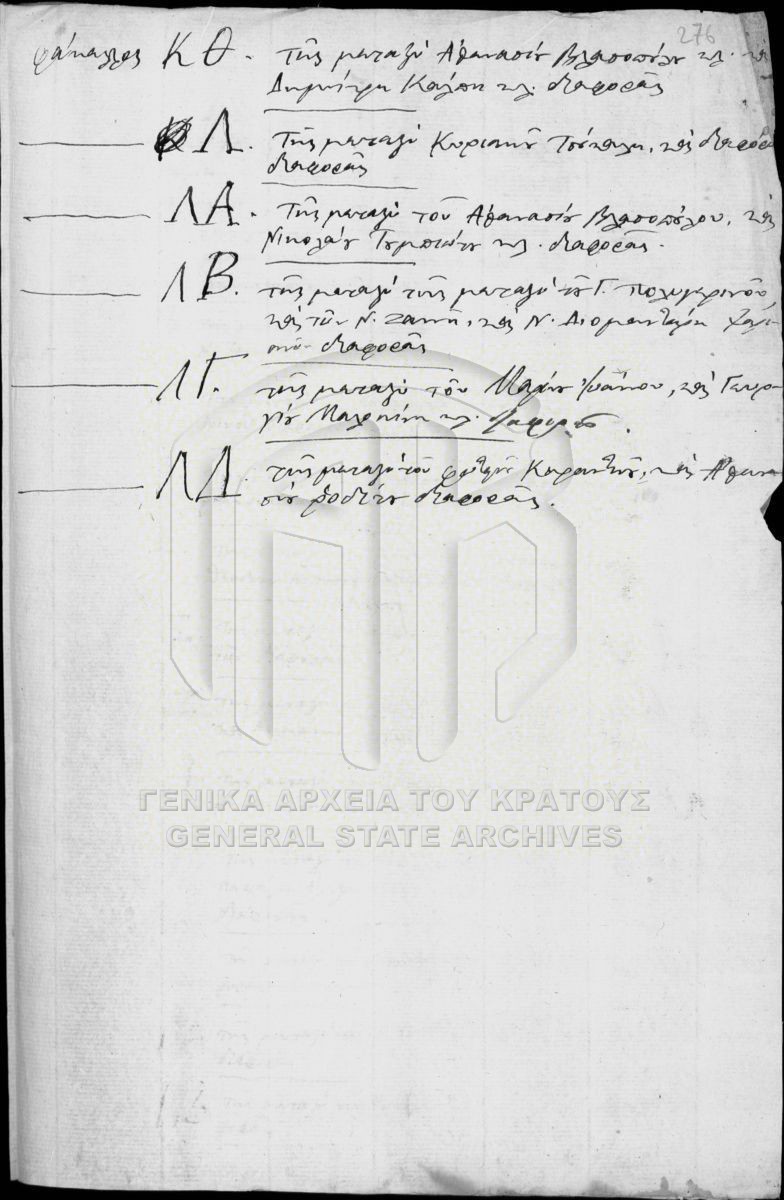 276
φάκελλος ΚΘ. τῆς μεταξὺ Ἀθανασίου Βλασοπούλου κλ. καὶ
Δημήτρη Καλπη κλ. διαφορᾶς
Λ. τῆς μεταξὺ Κυριακοῦ καὶ
διαφορᾶς
ΛΑ. τῆς μεταξὺ τοῦ Ἀθανασίου Βλασοπούλου, καὶ
Νικολάου κλ. διαφορᾶς.
ΛΒ. τῆς μεταξὺ τῆς μεταξὺ τοῦ Γ. Πολυγερινοῦ,
καὶ τῶν Ν. Ζαννῆ, καὶ Ν.
διαφορᾶς
ΛΓ. τῆς μεταξὺ τοῦ Ἰωάννου, καὶ Γεωρ
γίου κλ. διαφορᾶς.
ΛΔ. τῆς μεταξὺ τοῦ καὶ Ἀθανα
σίου διαφορᾶς.
ΓΕΝΙΚΑ ΑΡΧΕΙΑ ΤΟΥ ΚΡΑΤΟΥΣ
GENERAL STATE ARCHIVES